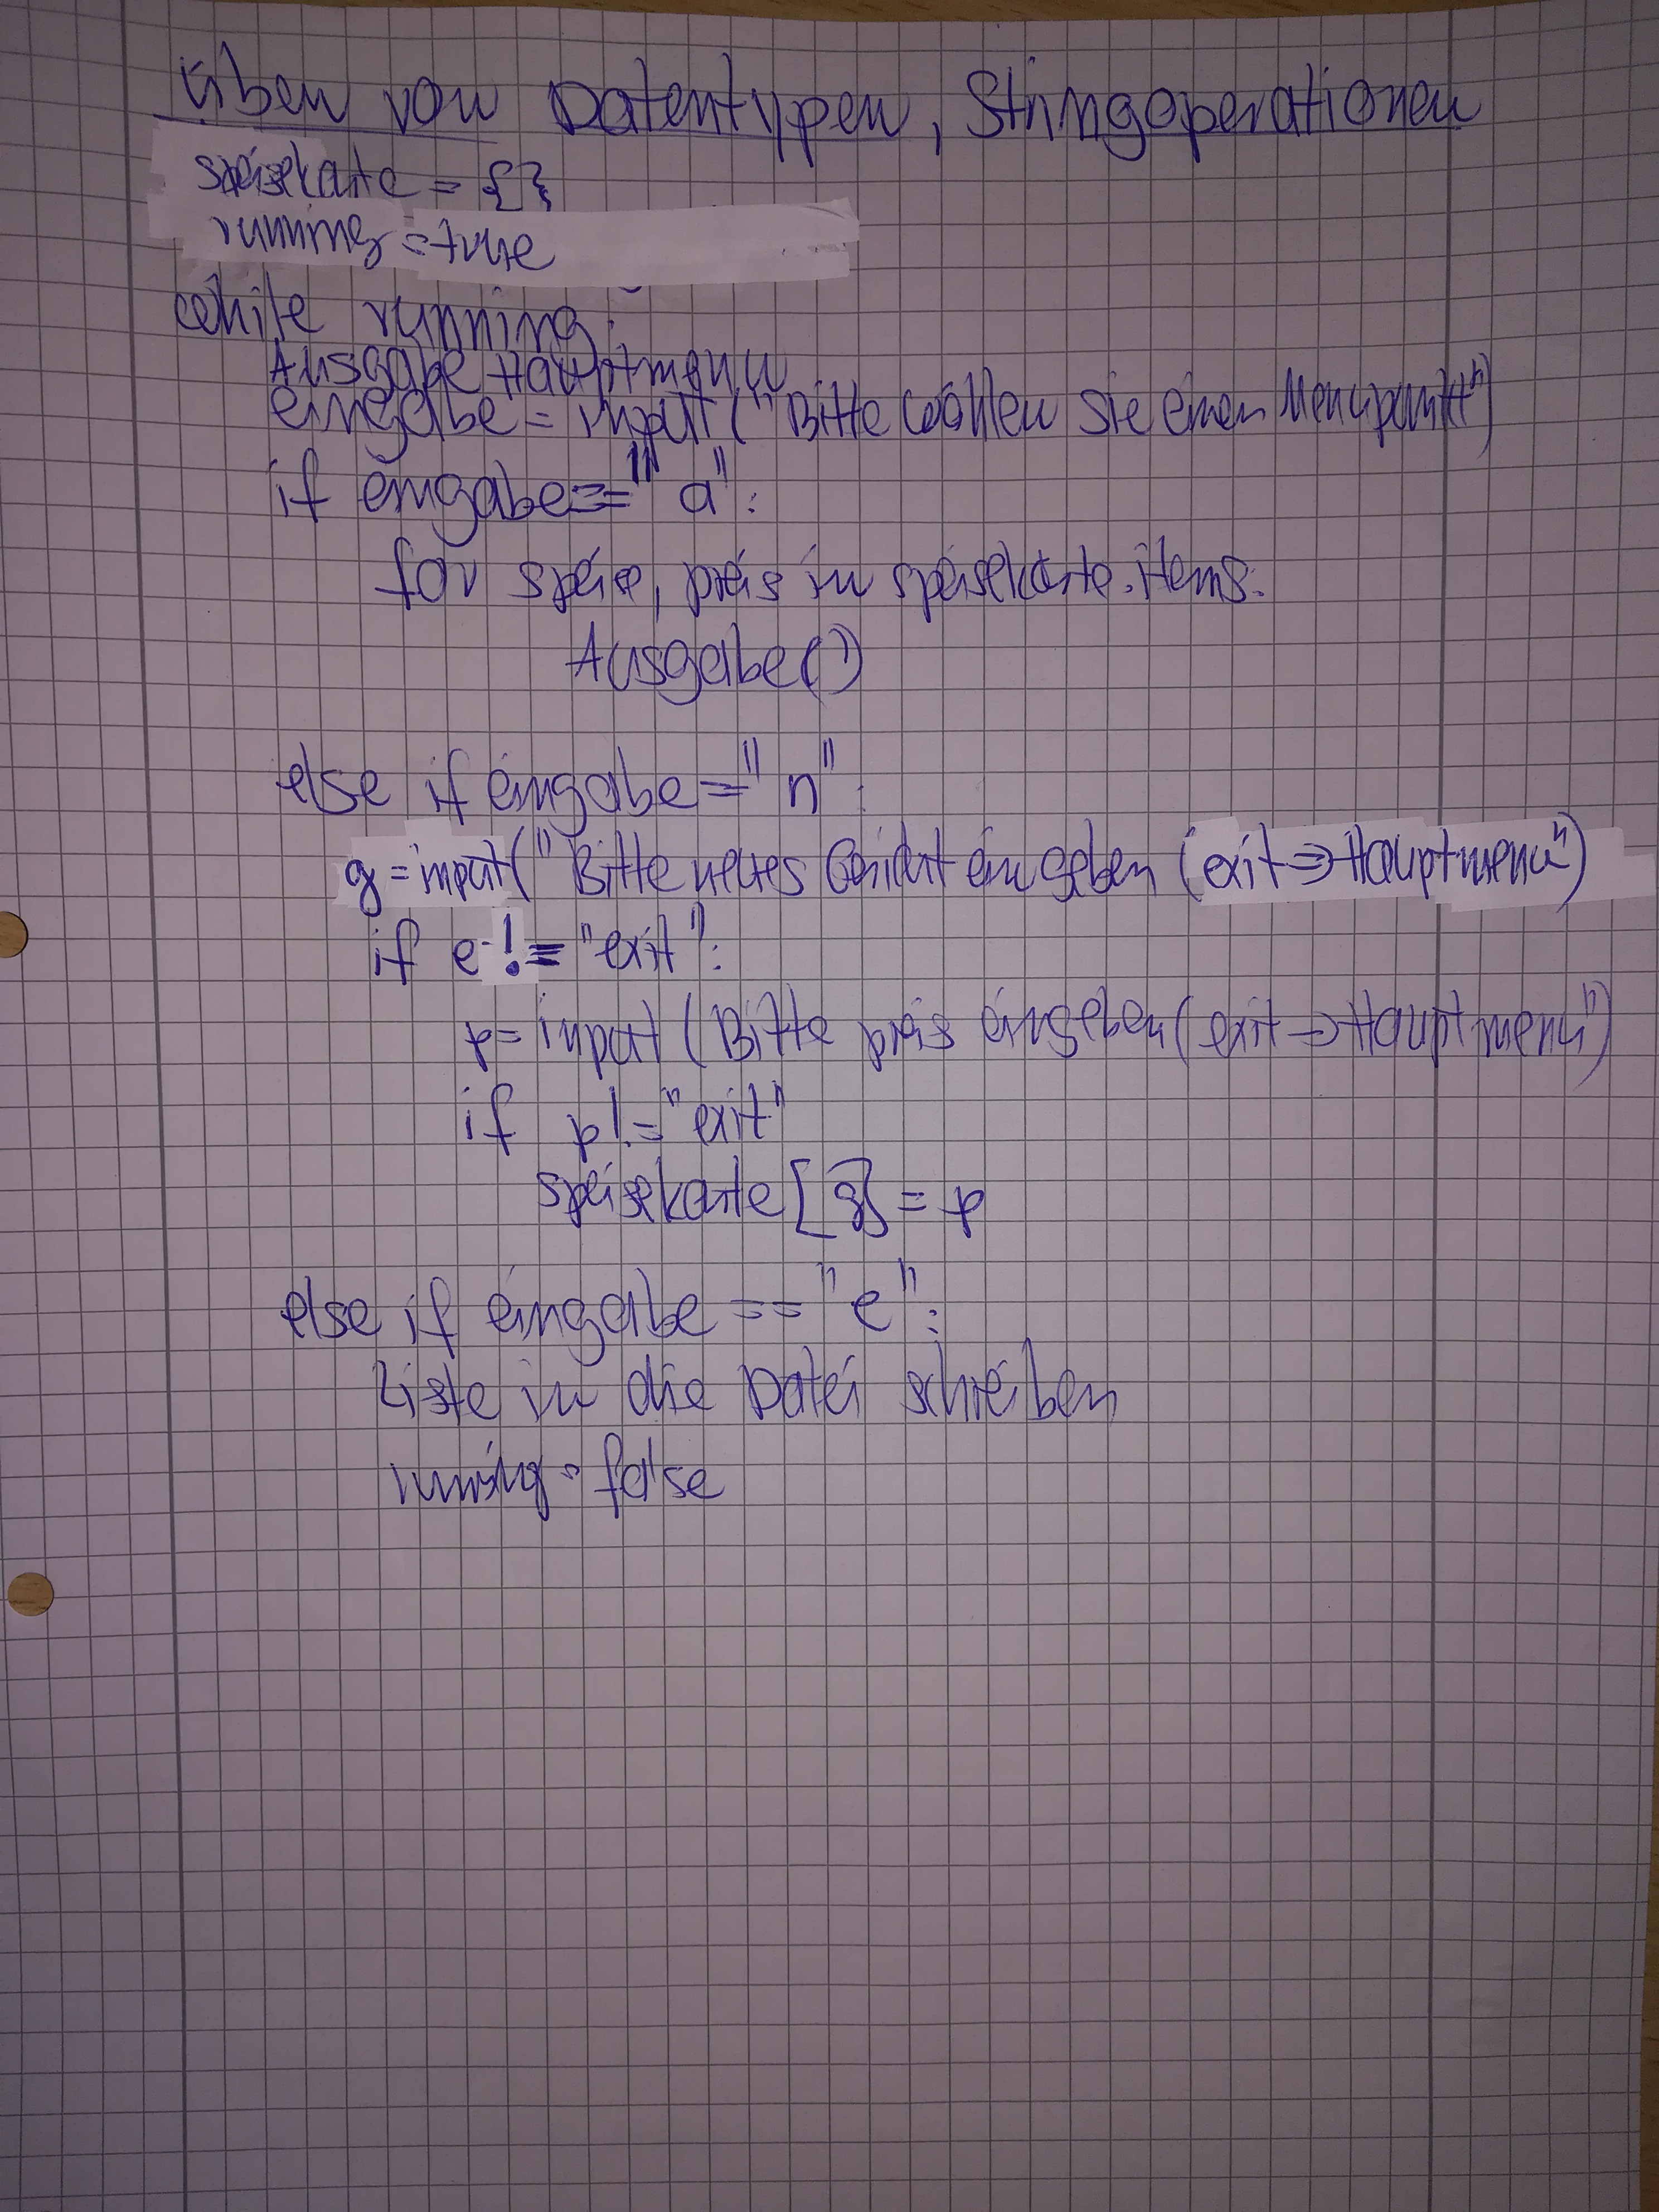 Üben von Datentypen, Stringoperationen
speisekarte = {}
running = true
while running:
Ausgabe Hauptmenu
eingabe = input ("Bitte wählen Sie einen Menupunkt")
if eingabe == "a":
for speise, preis in speisekarte.items:
Ausgabe()
else if eingabe = "n":
g = input("Bitte neues Gericht eingeben (exit => Hauptmenu")
if e != "exit":
p = input (Bitte preis eingeben (exit => Hauptmenu")
if p != "exit"
speisekarte [g] = p
else if eingabe == "e":
Liste in die Datei schreiben
= false